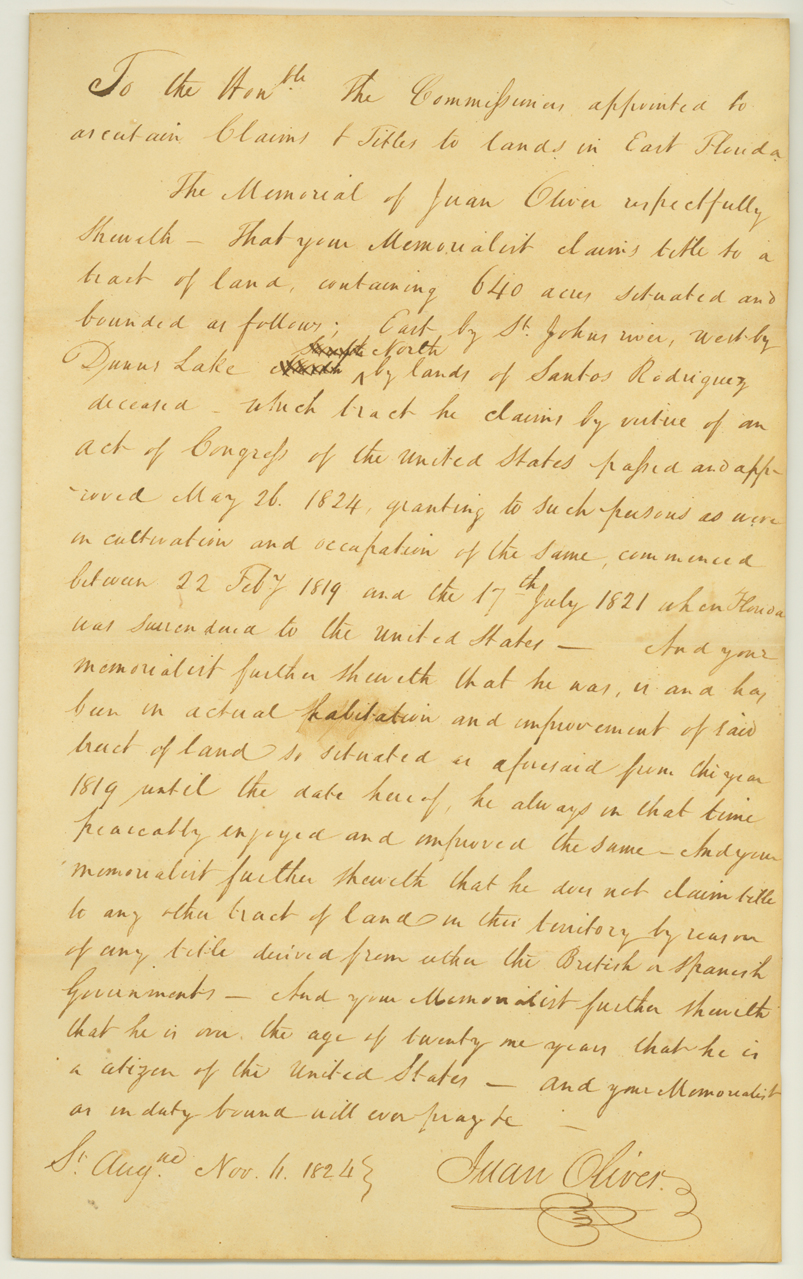 To the Honble The Commissioners appointed to
ascertain Claims & Titles to lands in East Florida
The Memorial of Juan Oliver respectfully
sheweth – That your Memorialist claims title to a
tract of land, containing 640 acres situated and
bounded as follows; East by St. Johns river, west by
North
Dunns Lake by lands of Santos Rodriguez
deceased – which tract he claims by virtue of an
act of Congress of the United States passed and app-
roved May 26. 1824, granting to such persons as were
in cultivation and occupation of the same, commenced
between 22 Feby 1819 and the 17th July 1821 when Florida
was surrendered to the United States – And your
memorialist further sheweth that he was, is and has
been in actual habitation and improvement of said
tract of land so situated as aforesaid from the year
1819 until the date hereof, he always in that time
peaceably enjoyed and improved the same – And your
memorialist further sheweth that he does not claim title
to any other tract of land in this territory by reason
of any title derived from either the British or Spanish
Governments – And your Memorialist further sheweth
that he is over the age of twenty one years that he is
a citizen of the United States – and your Memorialist
as in duty bound will ever pray &c –
St. Augne. Nov. 1824
Juan Oliver.